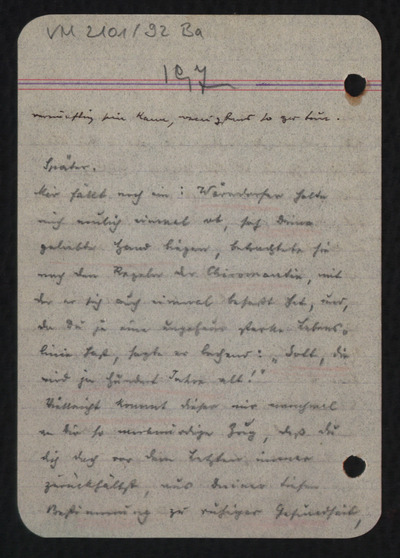 VM 2101/92 Ba
197
vernünftig sein kann, wenigstens so zu tun.
Später.
Mir fällt noch ein: Wärndorfer holte
mich neulich einmal ab, sah Deine
geliebte Hand liegen, betrachtete sie
nach den Regeln der Chiromantie, mit
der er sich auch einmal befaßt hat, und,
da Du ja eine ungeheuer starke Lebens-
linie hast, sagte er lachend: „Dolt, die
wird ja hundert Jahre alt!"
Vielleicht kommt dieser mir manchmal
an Dir so merkwürdige Zug, daß Du
Dich doch vor dem Letzten immer
zurückhältst, aus Deiner tiefen
Bestimmung zu ruhiger Gesundheit,